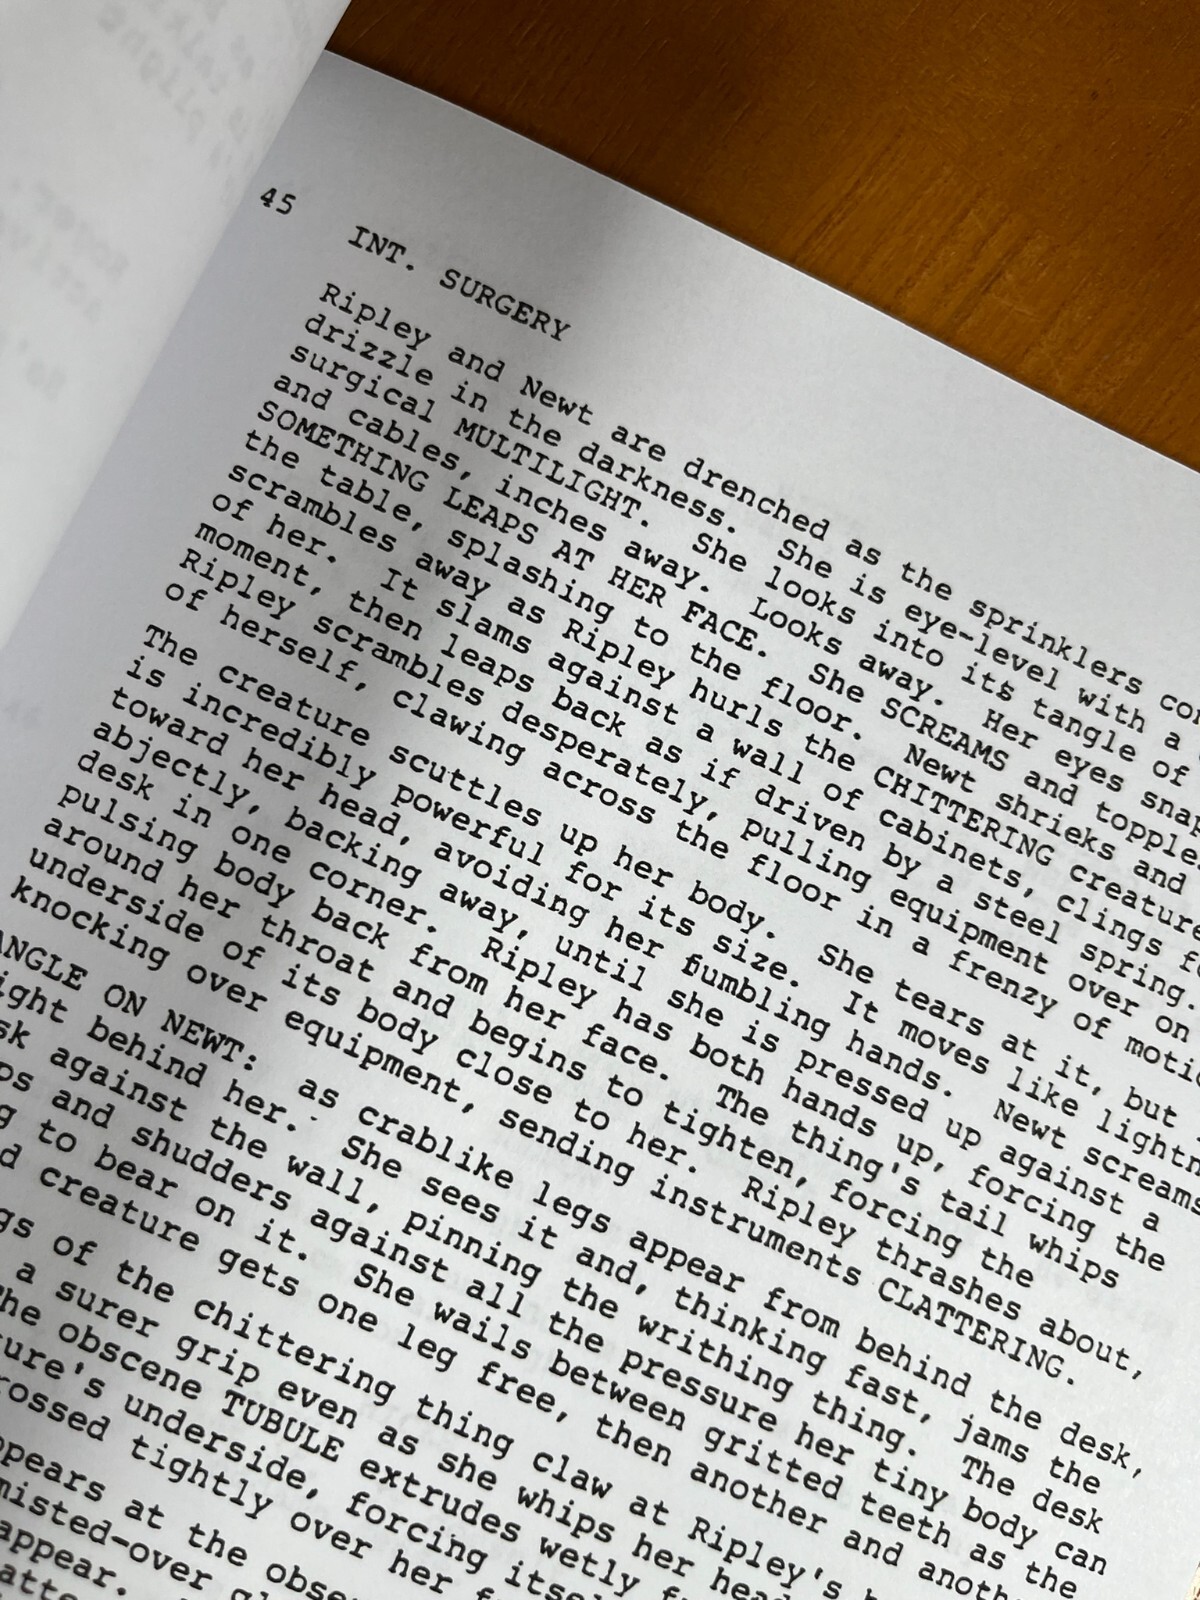 45
INT. SURGERY
Ripley and Newt are drenched as the sprinklers con
drizzle in the darkness. She is eye-level with a
surgical MULTILIGHT. She looks into its tangle of
and cables, inches away. Looks away. Her eyes snap
SOMETHING LEAPS AT HER FACE. She SCREAMS and topple
the table, splashing to the floor. Newt shrieks and
scrambles away as Ripley hurls the CHITTERING creature
of her. It slams against a wall of cabinets, clings fo
moment, then leaps back as if driven by a steel spring.
Ripley scrambles desperately, pulling equipment over on
of herself, clawing across the floor in a frenzy of motio
The creature scuttles up her body. She tears at it, but
is incredibly powerful for its size. It moves like lightn
toward her head, avoiding her fumbling hands. Newt screams
abjectly, backing away, until she is pressed up against a
desk in one corner. Ripley has both hands up, forcing the
pulsing body back from her face. The thing's tail whips
around her throat and begins to tighten, forcing the
underside of its body close to her. Ripley thrashes about,
knocking over equipment, sending instruments CLATTERING.
ANGLE ON NEWT: as crablike legs appear from behind the desk,
ight behind her. She sees it and, thinking fast, jams the
sk against the wall, pinning the writhing thing. The desk
ps and shudders against all the pressure her tiny body can
g to bear on it. She wails between gritted teeth as the
d creature gets one leg free, then another and anoth
gs of the chittering thing claw at Ripley's h
a surer grip even as she whips her head
he obscene TUBULE extrudes wetly f
ure's underside, forcing itsel
rossed tightly over her f
ppears at the obse
misted-over gl
appear.
atte